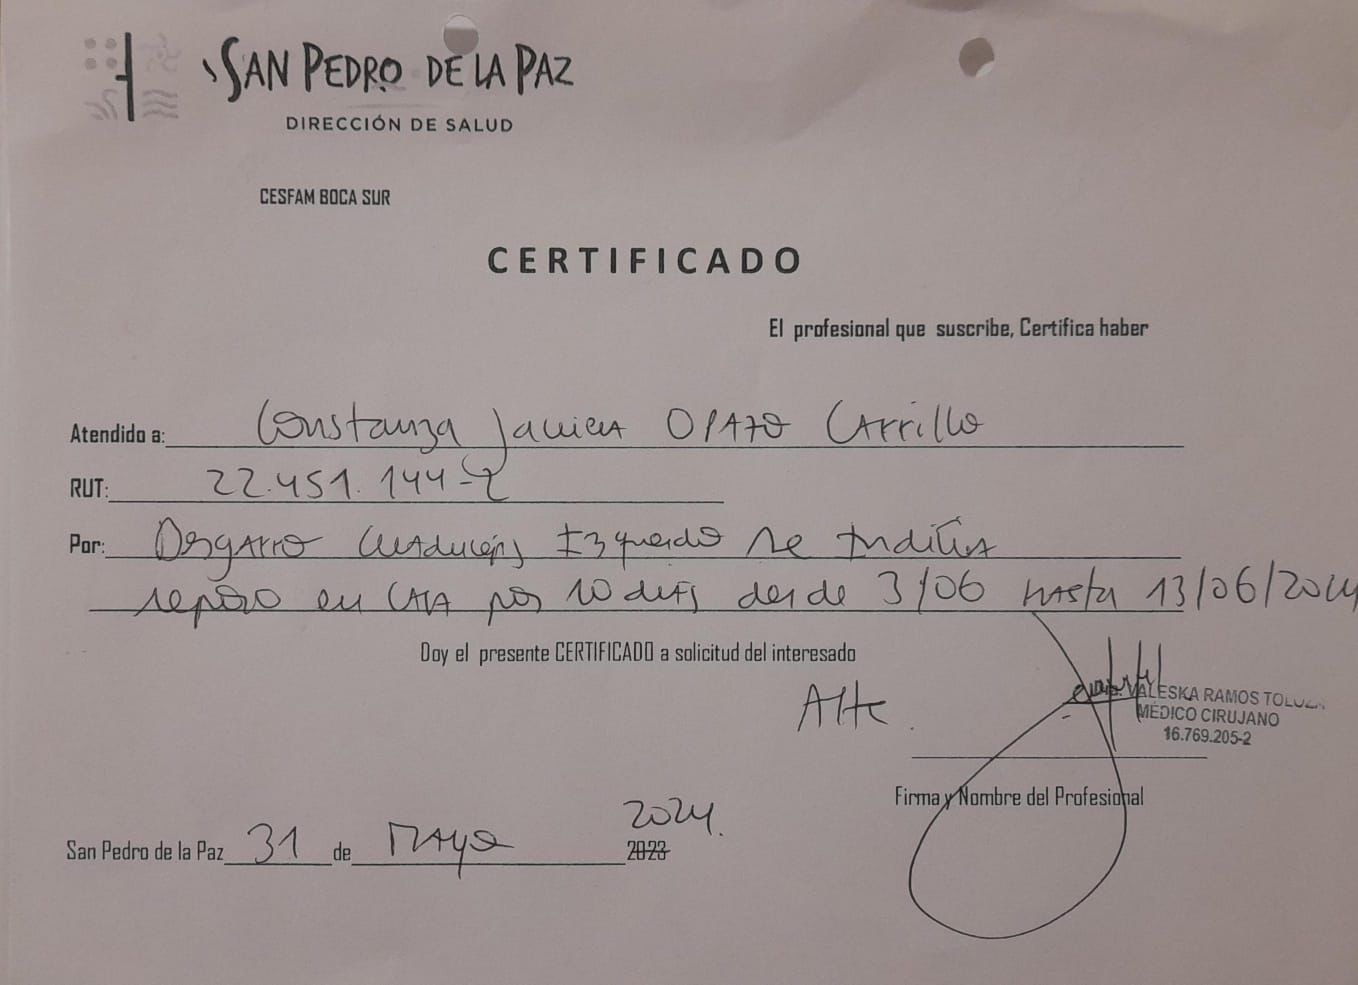 SAN PEDRO DE LA PAZ
DIRECCIÓN DE SALUD
CESFAM BOCA SUR
CERTIFICADO
El profesional que suscribe, Certifica haber
Atendido a: Constanza Javiera OPAZO CArrillo
RUT: 22.451.144-2
Por: Desgarro Izquierdo se Indica
reposo en CASA por 10 días desde 3/06 hasta 13/06/2024
Doy el presente CERTIFICADO a solicitud del interesado
Atte.
VALESKA RAMOS
MÉDICO CIRUJANO
16.769.205-2
Firma y Nombre del Profesional
San Pedro de la Paz 31 de MAyo 2023 2024.